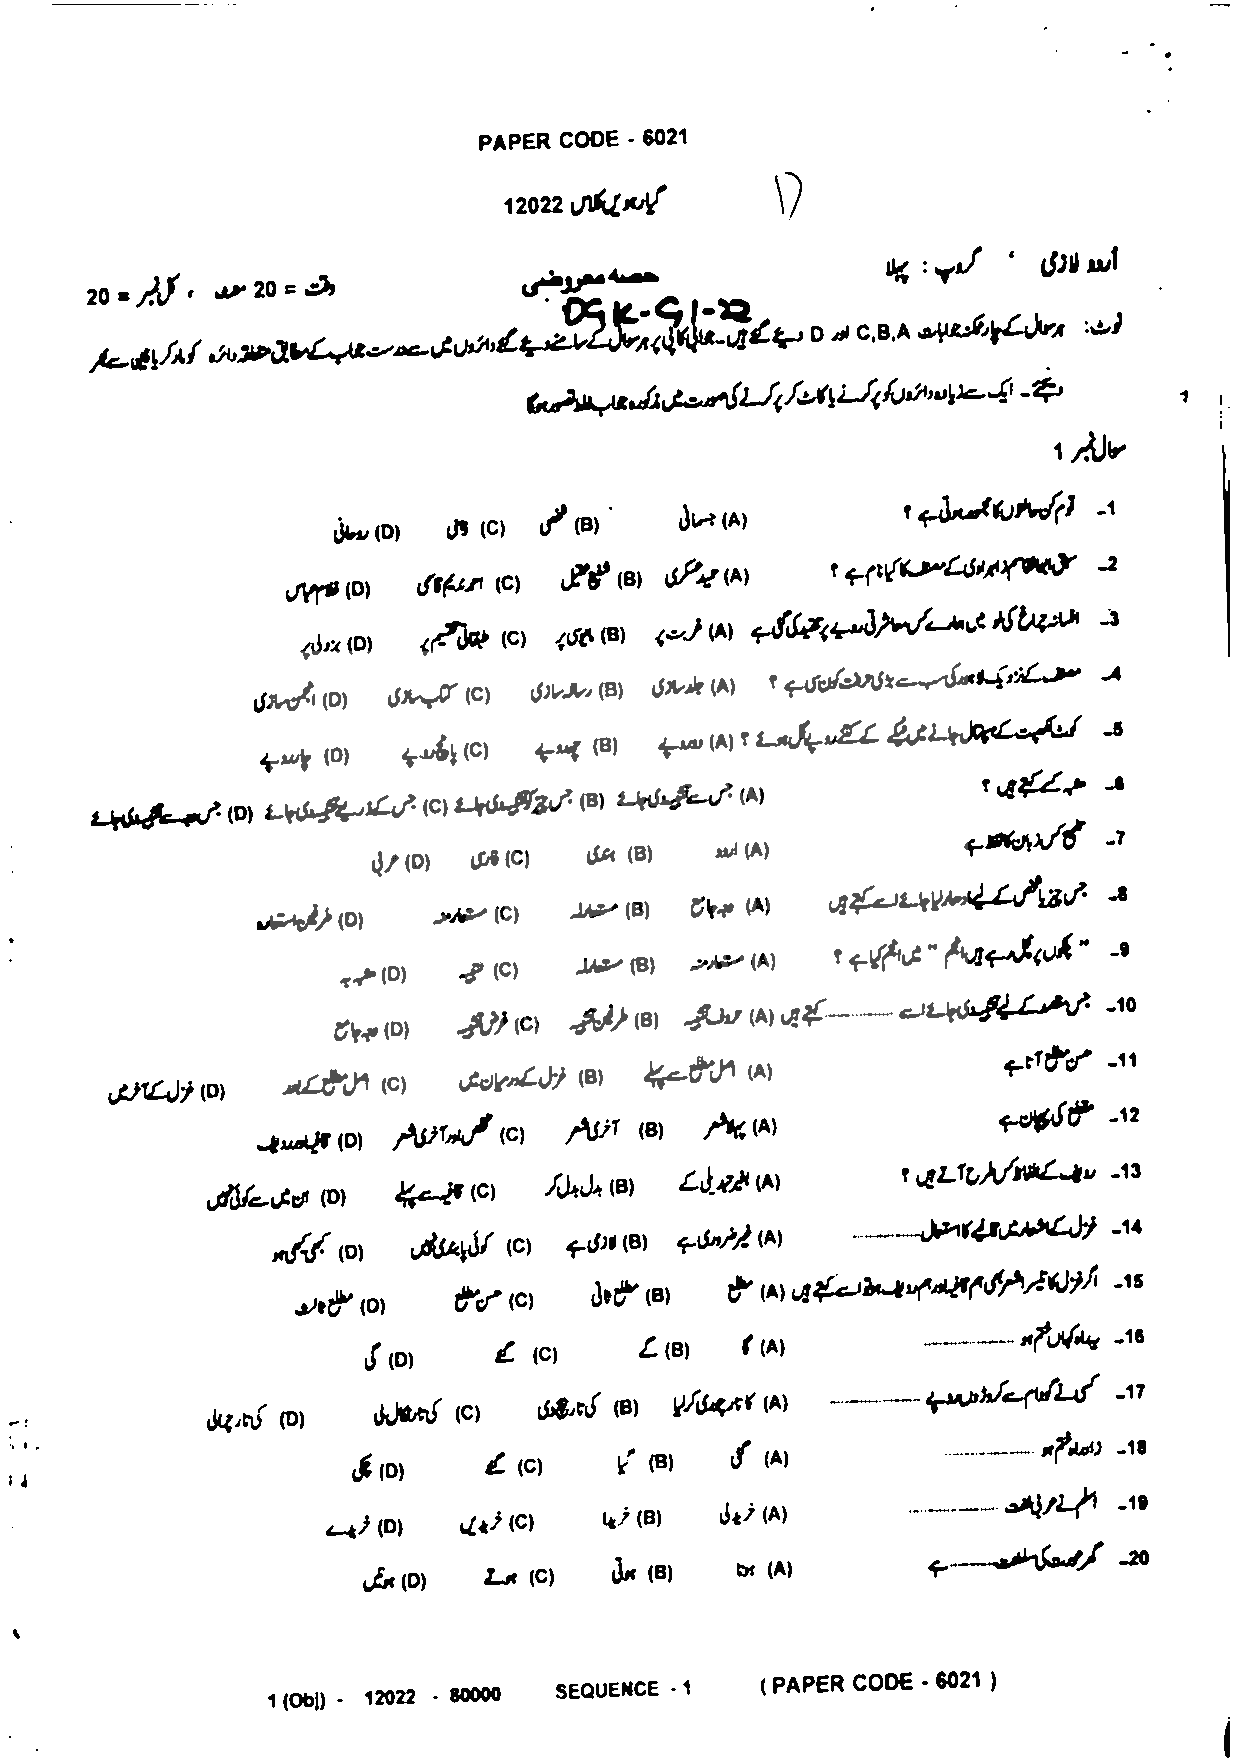 PAPER CODE - 6021
گیارھویں کلاس 12022
اُردو لازمی ، گروپ : پہلا
حصہ معروضی
وقت = 20 منٹ ، کل نمبر = 20
DGK-G1-22
نوٹ: ہر سوال کے چار ممکنہ جوابات C,B,A اور D دیے گئے ہیں۔ جوابی کاپی پر ہر سوال کے سامنے دیے گئے دائروں میں سے درست جواب کے مطابق متعلقہ دائرہ کو مارکر یا پین سے بھر
دیجئے۔ ایک سے زیادہ دائروں کو پُر کرنے یا کاٹ کر پُر کرنے کی صورت میں مذکورہ جواب غلط تصور ہوگا
سوال نمبر 1
1- قوم کن حالتوں کا مجموعہ ہوتی ہے ؟ (A) جسمانی (B) شخصی (C) ذاتی (D) روحانی
2- کے مصنف کا کیا نام ہے ؟ (A) حمید عسکری (B) شفیع عقیل (C) احمد ندیم قاسمی (D) غلام عباس
3- افسانہ چراغ کی لو میں ہمارے کس معاشرتی رویے پر تنقید کی گئی ہے (A) غربت پر (B) امیری پر (C) طبقاتی تقسیم پر (D) بزدلی پر
4- مصنف کے نزدیک لاہور کی سب سے بڑی حرفت کون سی ہے ؟ (A) جلد سازی (B) رسالہ سازی (C) کتاب سازی (D) انجمن سازی
5- کوٹ لکھپت کے ہسپتال جانے میں ٹیکسی کے کتنے روپے خرچ ہوئے ؟ (A) دو روپے (B) چھ روپے (C) پانچ روپے (D) چار روپے
6- مشبہ کسے کہتے ہیں ؟ (A) جس سے تشبیہ دی جائے (B) جس چیز کو تشبیہ دی جائے (C) جس کے ذریعے تشبیہ دی جائے (D) جس وجہ سے تشبیہ دی جائے
7- تلمیح کس زبان کا لفظ ہے (A) اردو (B) ہندی (C) فارسی (D) عربی
8- جس چیز یا شخص کے لیے ادھار لیا جائے اسے کہتے ہیں (A) وجہ جامع (B) مستعارلہ (C) مستعارمنہ (D) طرفین استعارہ
9- " پلکوں پر گل رہے ہیں انجم " میں انجم کیا ہے ؟ (A) مستعارمنہ (B) مستعارلہ (C) تشبیہ (D) مشبہ بہ
10- جس مقصد کے لیے تشبیہ دی جائے اسے ---------- کہتے ہیں (A) حروف تشبیہ (B) طرفین تشبیہ (C) غرض تشبیہ (D) وجہ جامع
11- حسن مطلع آتا ہے (A) اصل مطلع سے پہلے (B) غزل کے درمیان میں (C) اصل مطلع کے بعد (D) غزل کے آخر میں
12- مقطع کی پہچان ہے (A) پہلا شعر (B) آخری شعر (C) تخلص اور آخری شعر (D) قافیہ اور ردیف
13- ردیف کے الفاظ کس طرح آتے ہیں ؟ (A) بغیر تبدیلی کے (B) بدل بدل کر (C) قافیے سے پہلے (D) ان میں سے کوئی نہیں
14- غزل کے اشعار میں قافیے کا استعمال ---------- (A) غیر ضروری ہے (B) لازمی ہے (C) کوئی پابندی نہیں (D) کبھی کبھی ہو
15- اگر غزل کا تیسرا شعر بھی ہم قافیہ اور ہم ردیف ہو تو اسے کہتے ہیں (A) مطلع (B) مطلع ثانی (C) حسن مطلع (D) مطلع ثالث
16- یہ راہ کہاں ختم ہو ---------- (A) گا (B) گے (C) گئے (D) گی
17- کسی نے گودام سے کروڑوں روپے ---------- (A) کا تار چوری کر لیا (B) (C) (D) کی تار چرالی
18- زاد راہ ختم ہو ---------- (A) گئی (B) گیا (C) گئے (D) چکی
19- اسلم نے عربی لغت ---------- (A) خریدلی (B) خریدا (C) خریدیں (D) خریدے
20- گھر عورت کی سلطنت ---------- ہے (A) ہوتا (B) ہوتی (C) ہوتے (D) ہوتیں
1 (Obj) - 12022 - 80000 SEQUENCE - 1 ( PAPER CODE - 6021 )